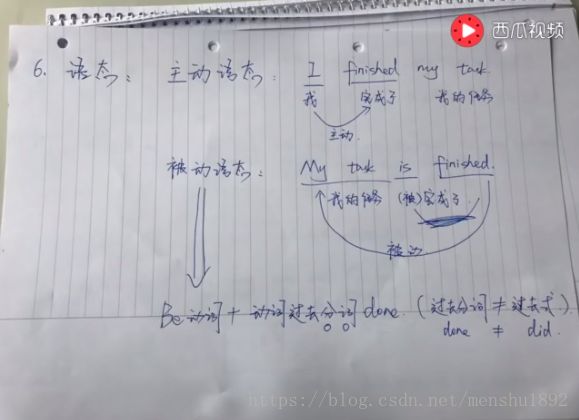 西瓜视频
6. 语态: 主动语态: I finished my task
我 完成了 我的任务
主动.
被动语态: My task is finished.
我的任务 (被)完成了.
被动
Be动词 + 动词过去分词 done. (过去分词 ≠ 过去式.)
done ≠ did.
https://blog.csdn.net/menshu1892